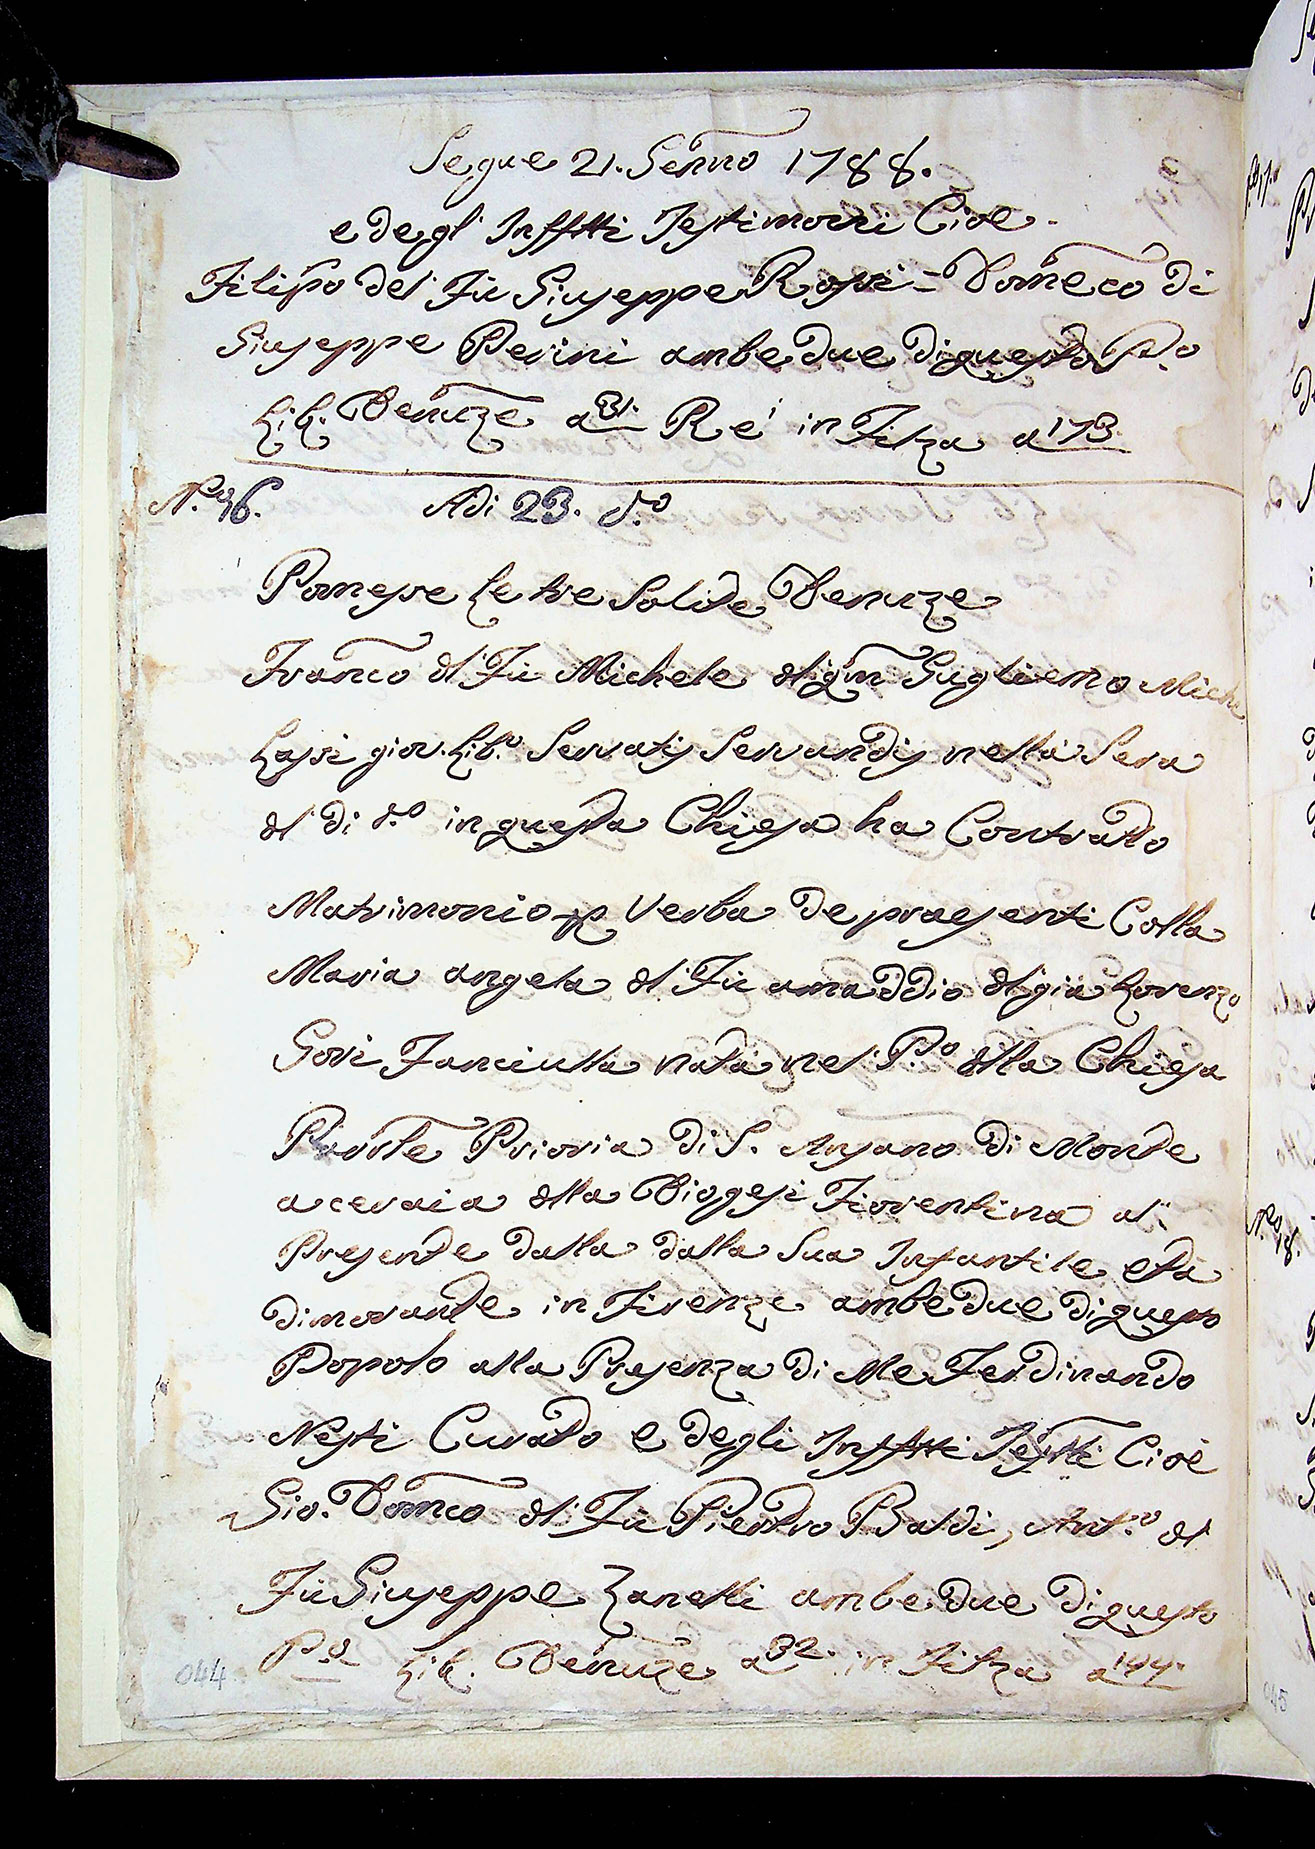 Segue 21. Genno 1788.
e degl' Infftti Testimonii Cioe
Filipo del Fu Giuseppe Rossi = Domeco di
Giuseppe Perini ambedue di questo P.o
Lib. Denuze a 31. Re' in Filza a 173.
N.o 46. Adi 23. d.o
Premesse Le tre Solite Denuze
Franco dl Fu Michele dl qm Guglielmo Miche
Lassi giov. Lib.o Servatis Servandis nella Sera
dl di d.o in questa Chiesa ha Contratto
Matrimonio p Verba de praesenti Colla
Maria angela dl Fu amaddio dl già Lorenzo
Gori Fanciulla nata nel P.o dlla Chiesa
Prioria di S. Ansano di Monte
aceraia dlla Diogesi Fiorentina al
Presente dalla dalla Sua Infantile età
dimorante in Firenze ambedue di questo
Popolo alla Presenza di Me Ferdinando
Nesti Curato e degli Infftti Testti Cioè
Gio. Domco dl Fu Pietro Baldi, Ant.o dl
Fu Giuseppe Zanetti ambedue di questo
P.o Lib. Denuze a 32. in Filza a
044
045